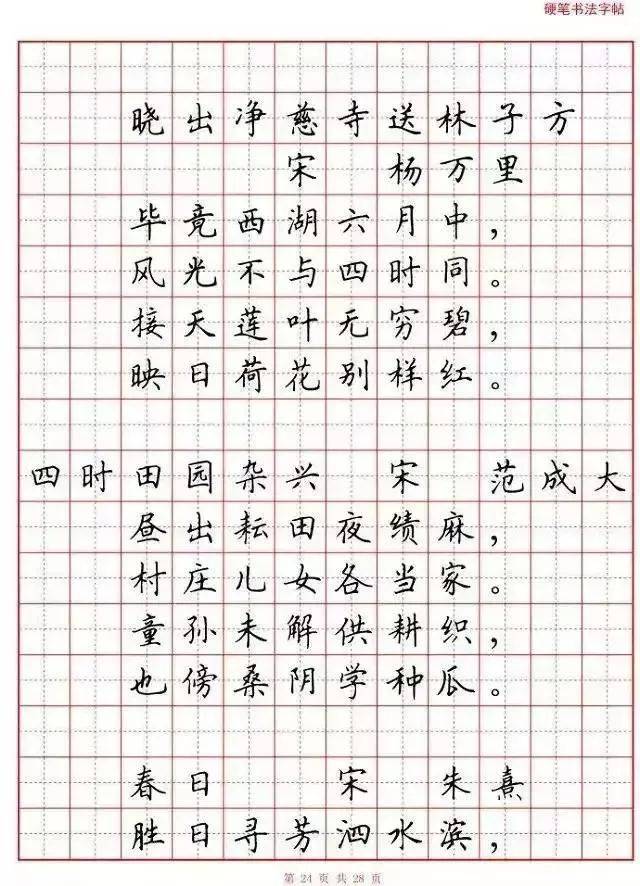 硬笔书法字帖
晓出净慈寺送林子方
宋 杨万里
毕竟西湖六月中，
风光不与四时同。
接天莲叶无穷碧，
映日荷花别样红。
四时田园杂兴 宋 范成大
昼出耘田夜绩麻，
村庄儿女各当家。
童孙未解供耕织，
也傍桑阴学种瓜。
春日 宋 朱熹
胜日寻芳泗水滨，
第 24 页 共 28 页